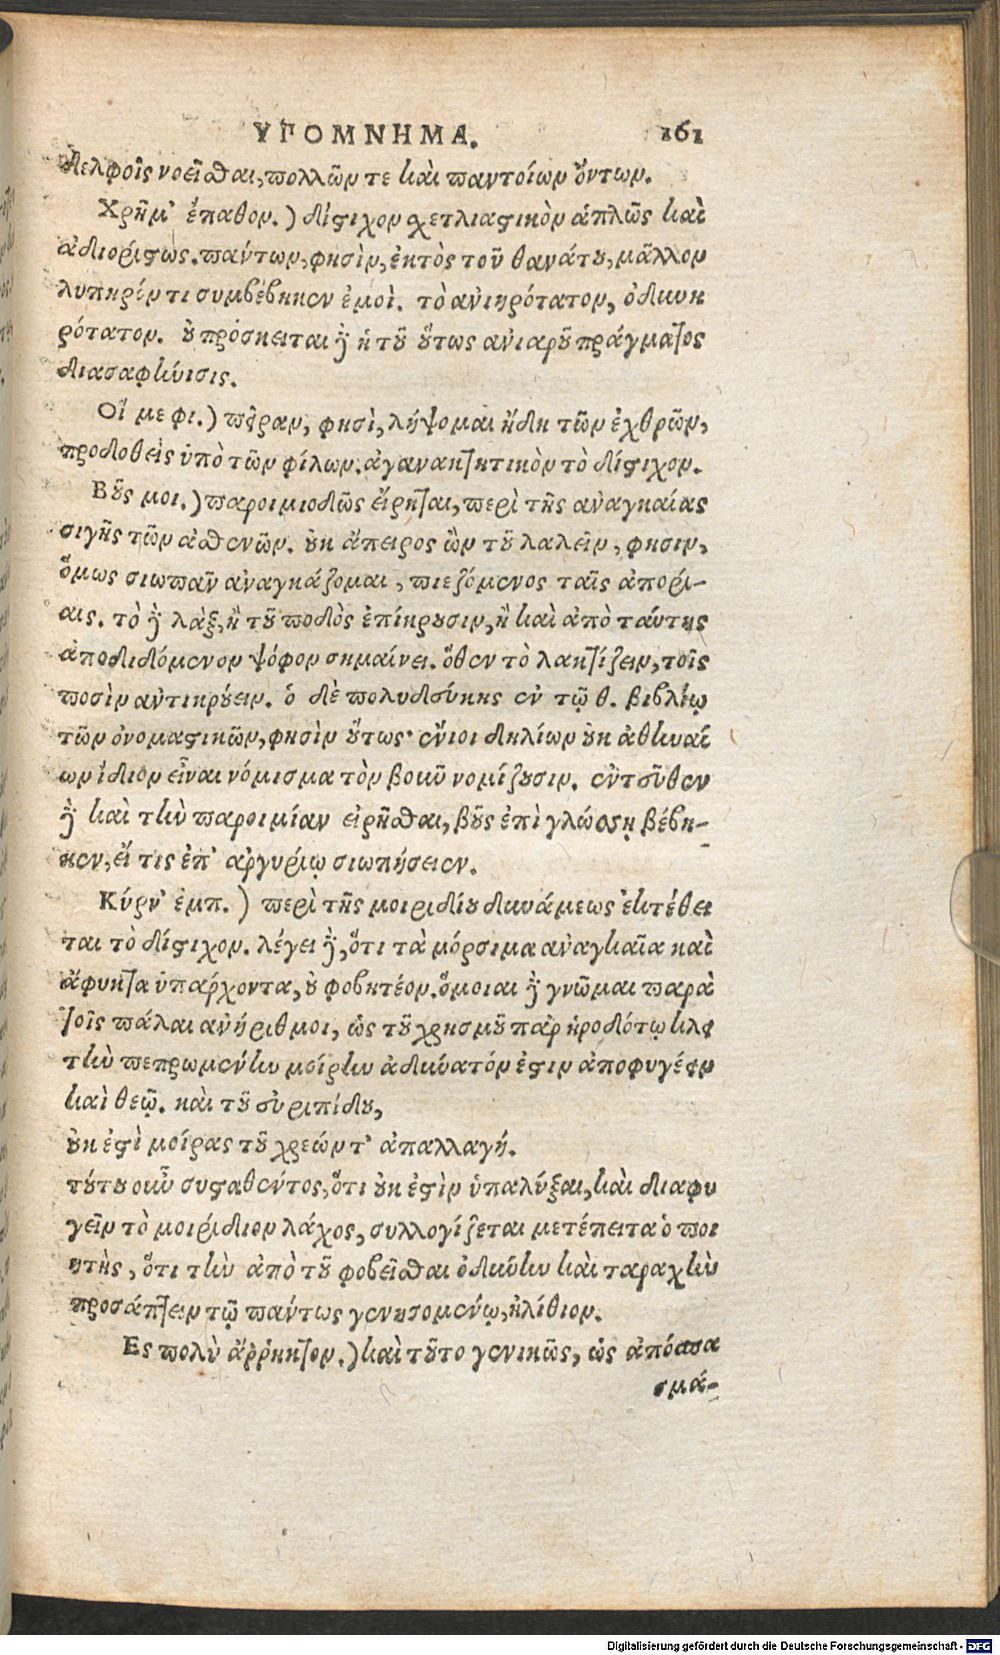 ΥΠΟΜΝΗΜΑ. 161
δελφοῖς νοεῖσθαι, πολλῶν τε καὶ παντοίων ὄντων.
Χρῆμ' ἔπαθον.) δίστιχον σχετλιαστικὸν ἁπλῶς καὶ
ἀδιορίστως. πάντων, φησὶν, ἐκτὸς τοῦ θανάτου, μᾶλλον
λυπηρόν τι συμβέβηκεν ἐμοὶ. τὸ ἀνιηρότατον, ὀδυνη
ρότατον. οὐ πρόσκειται δὲ ἡ τοῦ οὕτως ἀνιαροῦ πράγματος
διασαφήνισις.
Οἵ με φι.) πεῖραν, φησὶ, λήψομαι ἤδη τῶν ἐχθρῶν,
προδοθεὶς ὑπὸ τῶν φίλων. ἀγανακτητικὸν τὸ δίστιχον.
Βοῦς μοι.) παροιμιοδῶς εἴρηται, περὶ τῆς ἀναγκαίας
σιγῆς τῶν ἀσθενῶν. οὐκ ἄπειρος ὢν τοῦ λαλεῖν, φησιν,
ὅμως σιωπᾶν ἀναγκάζομαι, πιεζόμενος ταῖς ἀπορί-
αις. τὸ δὲ λὰξ, ἢ τοῦ ποδὸς ἐπίκρουσιν, ἢ καὶ ἀπὸ ταύτης
ἀποδιδόμενον ψόφον σημαίνει. ὅθεν τὸ λακτίζειν, τοῖς
ποσὶν ἀντικρούειν. ὁ δὲ πολυδεύκης ἐν τῷ θ. βιβλίῳ
τῶν ὀνομαστικῶν, φησὶν οὕτως· ἔνιοι δηλίων οὐκ ἀθηναί
ων ἴδιον εἶναι νόμισμα τὸν βοῦν νομίζουσιν. ἐντεῦθεν
δὲ καὶ τὴν παροιμίαν εἰρῆσθαι, βοῦς ἐπὶ γλώσσῃ βέβη-
κεν, εἴ τις ἐπ' ἀργυρίῳ σιωπήσειεν.
Κύρν' ἐμπ.) περὶ τῆς μοιριδίου δυνάμεως ἐκτέθει
ται τὸ δίστιχον. λέγει δὲ, ὅτι τὰ μόρσιμα ἀναγκαῖα καὶ
ἄφυκτα ὑπάρχοντα, οὐ φοβητέον. ὅμοιαι δὲ γνῶμαι παρὰ
τοῖς πάλαι ἀνήριθμοι, ὡς τοῦ χρησμοῦ παρ' ἡροδότῳ
τὴν πεπρωμένην μοίρην ἀδύνατόν ἐστιν ἀποφυγέειν
καὶ θεῷ. καὶ τοῦ εὐριπίδου,
οὐκ ἐστὶ μοίρας τοῦ χρεών τ' ἀπαλλαγή.
τούτου οὖν συσταθέντος, ὅτι οὐκ ἐστὶν ὑπαλύξαι, καὶ διαφυ
γεῖν τὸ μοιρίδιον λάχος, συλλογίζεται μετέπειτα ὁ ποι
ητὴς, ὅτι τὴν ἀπὸ τοῦ φοβεῖσθαι ὀδύνην καὶ ταραχὴν
προσάπτειν τῷ πάντως γενησομένῳ, ἠλίθιον.
Ες πολὺ ἄῤῥηκτον.) καὶ τοῦτο γενικῶς, ὡς ἀπόσπα
σμά-
Digitalisierung gefördert durch die Deutsche Forschungsgemeinschaft - DFG